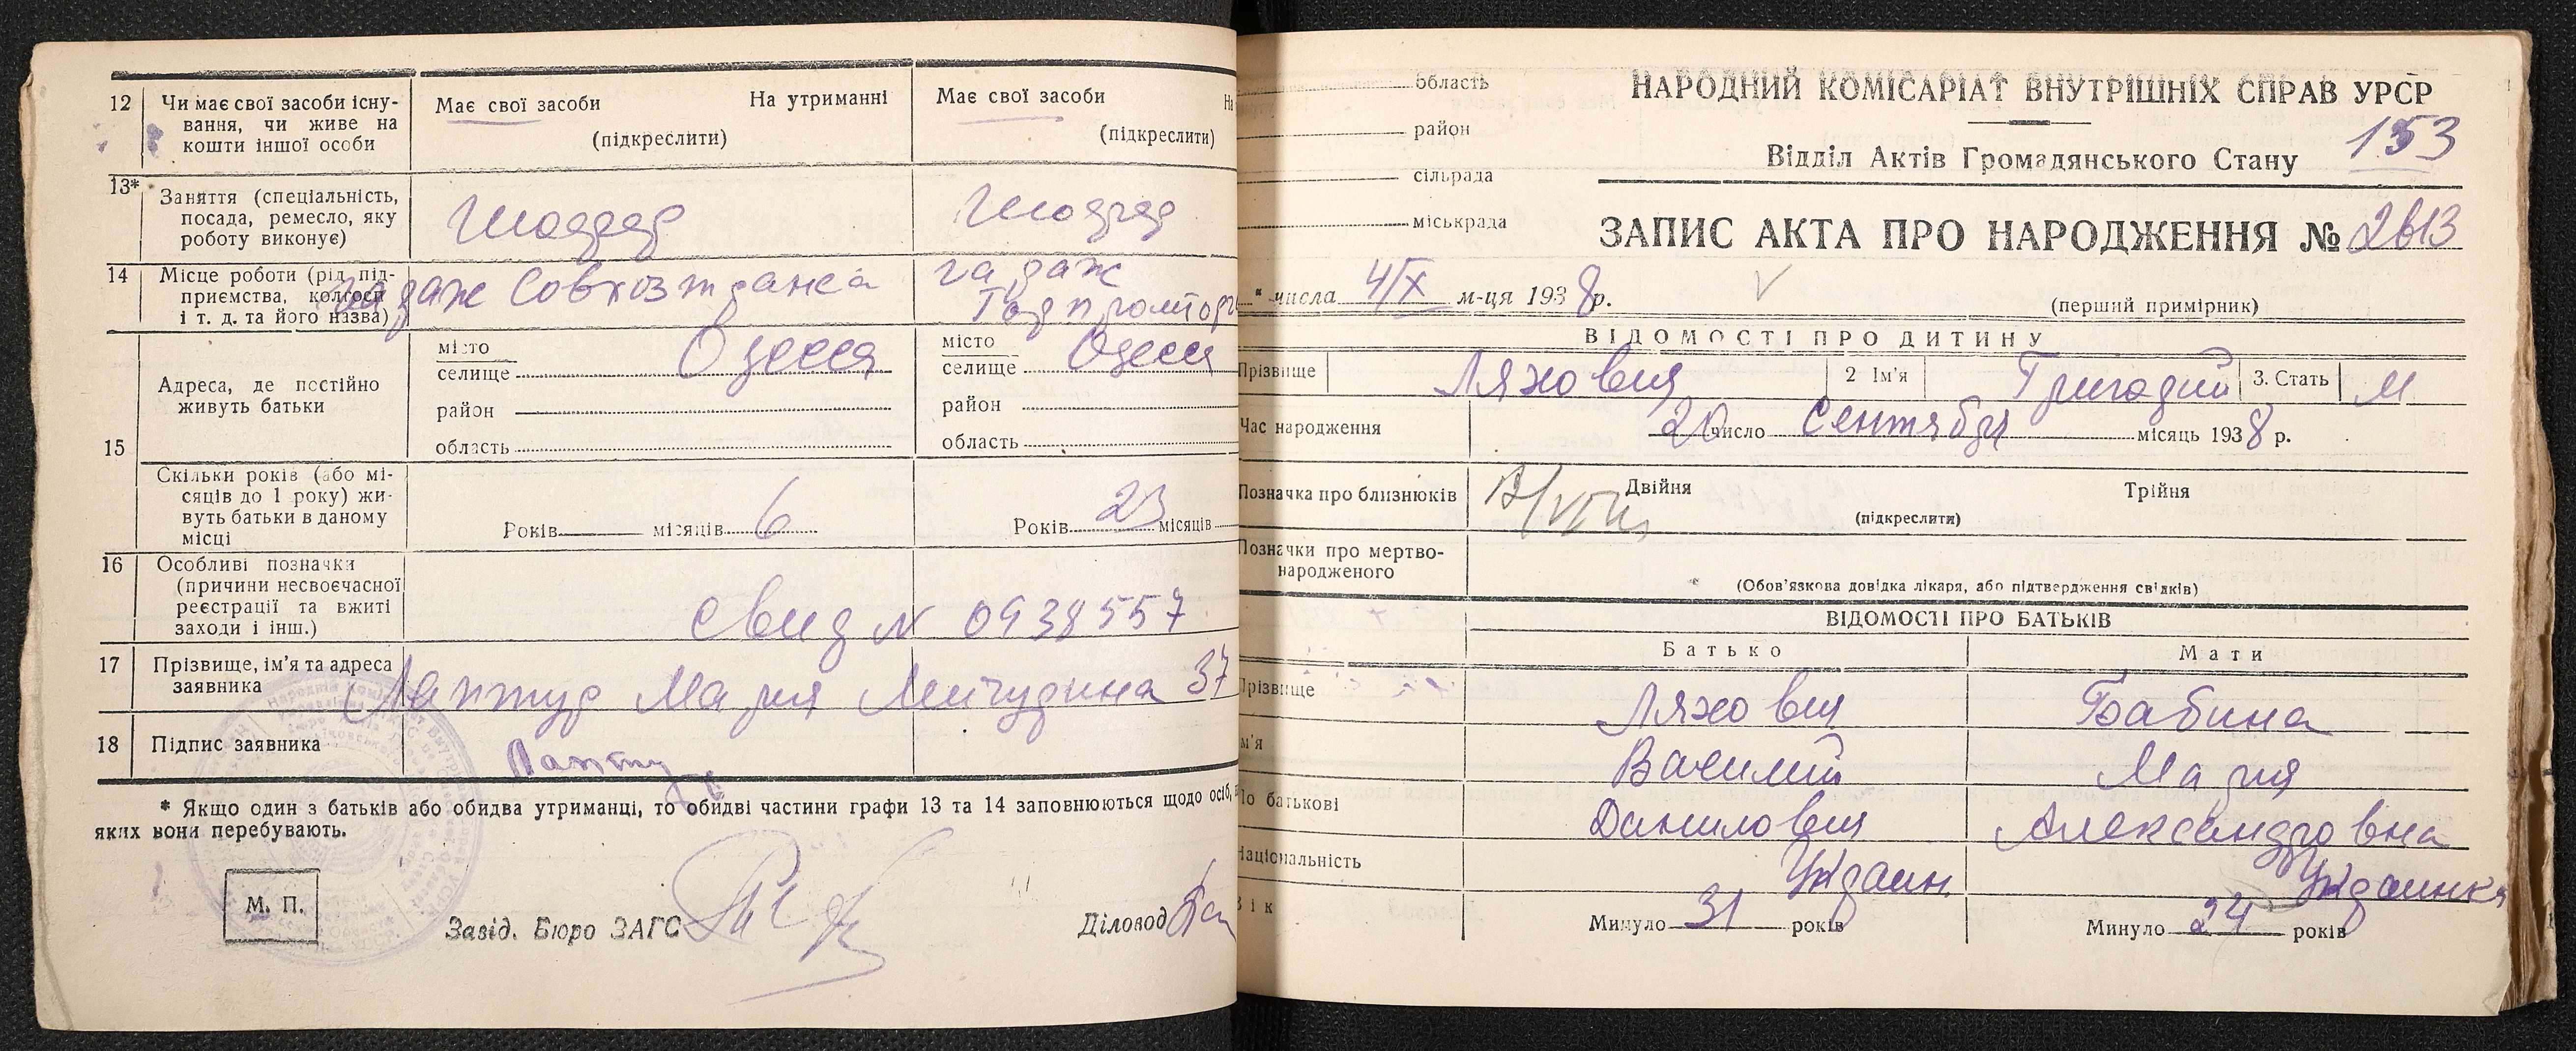 12 Чи має свої засоби існу-
вання, чи живе на
кошти іншої особи
Має свої засоби На утриманні
(підкреслити)
Має свої засоби На
(підкреслити)
13* Заняття (спеціальність,
посада, ремесло, яку
роботу виконує)
Шофер
Шофер
14 Місце роботи (рід під-
приємства, колгосп
і т. д. та його назва)
гараж Совхозтранса
гараж
Горпромторг
15 Адреса, де постійно
живуть батьки
місто
селище Одесса
район
область
місто
селище Одесса
район
область
Скільки років (або мі-
сяців до 1 року) жи-
вуть батьки в даному
місці
Років місяців 6
Років 23 місяців
16 Особливі позначки
(причини несвоєчасної
реєстрації та вжиті
заходи і інш.)
Свид N 0938557
17 Прізвище, ім'я та адреса
заявника
Лаптур Мария Мичурина 37
18 Підпис заявника
Лаптур
* Якщо один з батьків або обидва утриманці, то обидві частини графи 13 та 14 заповнюються щодо осіб,
яких вони перебувають.
М. П.
Завід. Бюро ЗАГС
Діловод
область
район
сільрада
міськрада
НАРОДНИЙ КОМІСАРІАТ ВНУТРІШНІХ СПРАВ УРСР
Відділ Актів Громадянського Стану
153
ЗАПИС АКТА ПРО НАРОДЖЕННЯ № 2613
" числа 4/X м-ця 1938 р.
(перший примірник)
ВІДОМОСТІ ПРО ДИТИНУ
Прізвище Ляхович 2 Ім'я Григорий 3. Стать М
Час народження 20 число Сентября місяць 1938 р.
Позначка про близнюків Двійня Трійня
(підкреслити)
Позначки про мертво-
народженого
(Обов'язкова довідка лікаря, або підтвердження свідків)
ВІДОМОСТІ ПРО БАТЬКІВ
Батько Мати
Прізвище Ляхович Бабина
м'я Василий Мария
По батькові Данилович Александровна
Національність Украин. Украинка
Вік Минуло 31 років Минуло 24 років